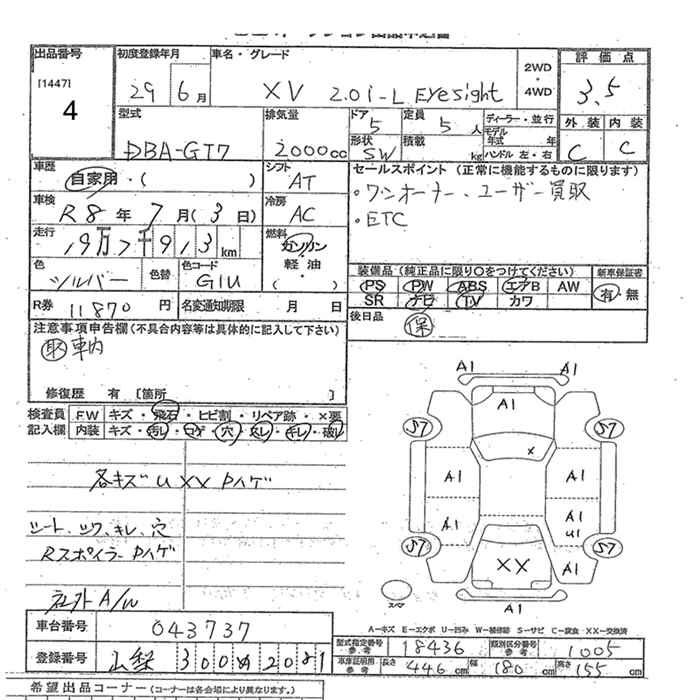 出品番号 初度登録年月 車名・グレード 2WD・4WD 評価点
[1447] 4 29 6月 XV 2.0i-L Eyesight 3.5
型式 排気量 ドア 5 定員 5人 ディーラー・並行 外装 内装
DBA-GT7 2000cc 形状 SW 積載 kg モデル年式 年 ハンドル 左・右 C C
車歴 自家用・( ) シフト AT セールスポイント (正常に機能するものに限ります)
車検 R8年 7月 (3日) 冷房 AC ・ワンオーナー、ユーザー買取
走行 19万7千913km 燃料 ガソリン・軽油・( ) ・ETC
色 シルバー 色替 色コード G1U 装備品 (純正品に限り○をつけてください) 新車保証書
PS PW ABS エアB AW 有・無
R券 11870円 名変通知期限 月 日 SR ナビ TV カワ
注意事項申告欄(不具合内容等は具体的に記入して下さい) 後日品 保
取 車内
修復歴 有 [箇所 ]
検査員 FW キズ・飛石・ヒビ割・リペア跡・×要
記入欄 内装 キズ・汚れ・コゲ・穴・スレ・キレ・破れ
A1 A1
A1
S7 S7
x
各キズ U XX Pハゲ
A1 A1
シート、シワ、キレ、穴
A1 A1 U1
Rスポイラー Pハゲ
S7 S7
XX A1
スペア
A/W
A1
車台番号 043737
A−キズ E−エクボ U−凹み W−補修跡 S−サビ C−腐食 XX−交換済
登録番号 山梨 300 2081
型式指定番号 参考 18436 類別区分番号 参考 1005
車庫証明用 参考 長さ 446cm 幅 180cm 高さ 155cm
希望出品コーナー (コーナーは各会場により異なります。)